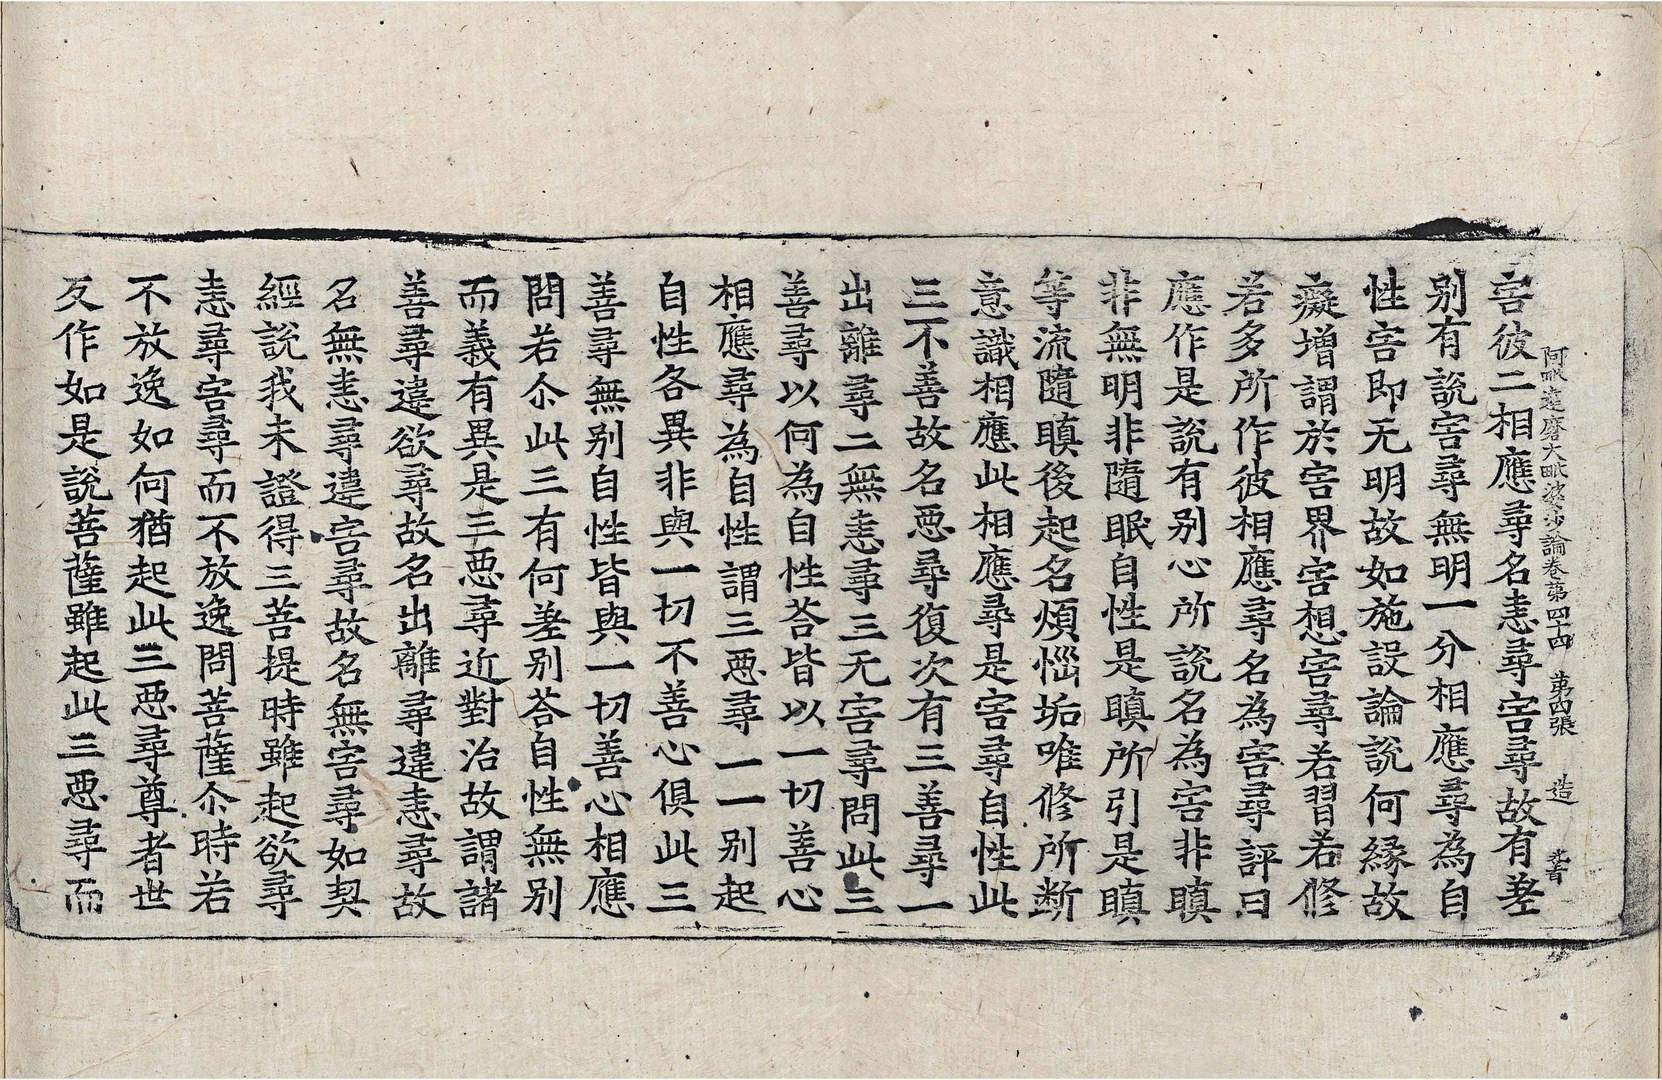 阿毗達磨大毗婆沙論卷第四十四　第四張　造
害彼二相應尋名恚尋害尋故有差
别有說害尋無明一分相應尋為自
性害即无明故如施設論說何縁故
癡增謂於害界害想害尋若習若修
若多所作彼相應尋名為害尋評曰
應作是說有别心所說名為害非瞋
非無明非隨眠自性是瞋所引是瞋
等流隨瞋後起名煩惱垢唯修所断
意識相應此相應尋是害尋自性此
三不善故名惡尋復次有三善尋一
出離尋二無恚尋三无害尋問此三
善尋以何為自性荅皆以一切善心
相應尋為自性謂三惡尋一一别起
自性各異非與一切不善心俱此三
善尋無别自性皆與一切善心相應
問若尒此三有何差别荅自性無别
而義有異是三惡尋近對治故謂諸
善尋違欲尋故名出離尋違恚尋故
名無恚尋違害尋故名無害尋如契
經說我未證得三菩提時雖起欲尋
恚尋害尋而不放逸問菩薩尒時若
不放逸如何猶起此三惡尋尊者世
友作如是說菩薩雖起此三惡尋而